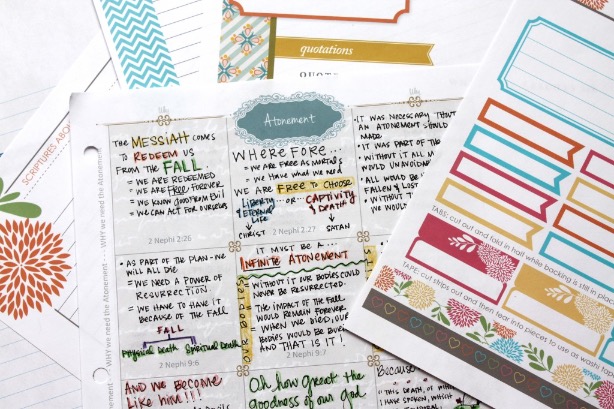 quotations
SCRIPTURES ABO
Why
Why
Atonement
THE MESSIAH COMES
TO REDEEM US
FROM THE FALL
= WE ARE REDEEMED
= WE ARE FREE FOREVER
= WE KNOW GOOD FROM EVIL
= WE CAN ACT FOR OURSELVES
2 Nephi 2:26
WHEREFORE...
= WE ARE FREE AS MORTALS
= We Have what we need
WE ARE FREE TO CHOOSE
LIBERTY & ETERNAL LIFE
OR
CAPTIVITY & DEATH
CHRIST
SATAN
2 Nephi 2:27
• IT WAS NECESSARY THAT
AN ATONEMENT SHOULD
MADE
• IT WAS PART OF THE
• WITHOUT IT ALL M
WOULD UNAVOID
• ALL WOULD BE
FALLEN & LOST
• WITHOUT
WE WOULD
WHY we need the Atonement - - - WHY we need the Atonement
• AS PART OF THE PLAN - WE
WILL ALL DIE
= WE NEED A POWER OF
RESURRECTION
= WE HAVE TO HAVE IT
BECAUSE OF THE FALL
FALL
Physical Death
Spiritual Death
2 Nephi 9:6
IT MUST BE A...
INFINITE ATONEMENT
• WITHOUT IT OUR BODIES COULD
NEVER BE RESURRECTED.
• THE IMPACT OF THE FALL
WOULD REMAIN FOREVER
• WHEN WE DIED, OUR
BODIES WOULD BE
AND THAT IS IT!
2 Nephi 9:7
AND WE BECOME
LIKE HIM!!!
Oh how great the
goodness of our God
Because
• THIS DEATH, OF WHICH
HAVE SPOKEN, WHICH
TABS: cut out and fold in half while backing is still in pl
TAPE: cut strips out and then tear into pieces to use as washi tap